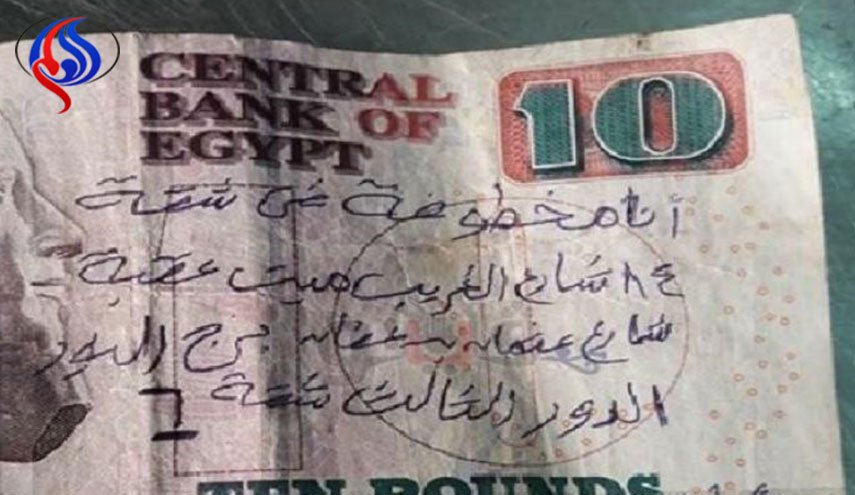 CENTRAL
BANK OF
EGYPT
10
أنا مخطوفة في شقة
٤٨ شارع الغريب ميت عقبة
شارع عثمان بن عفان برج البدور
الدور الثالث شقة ٦
TEN POUNDS